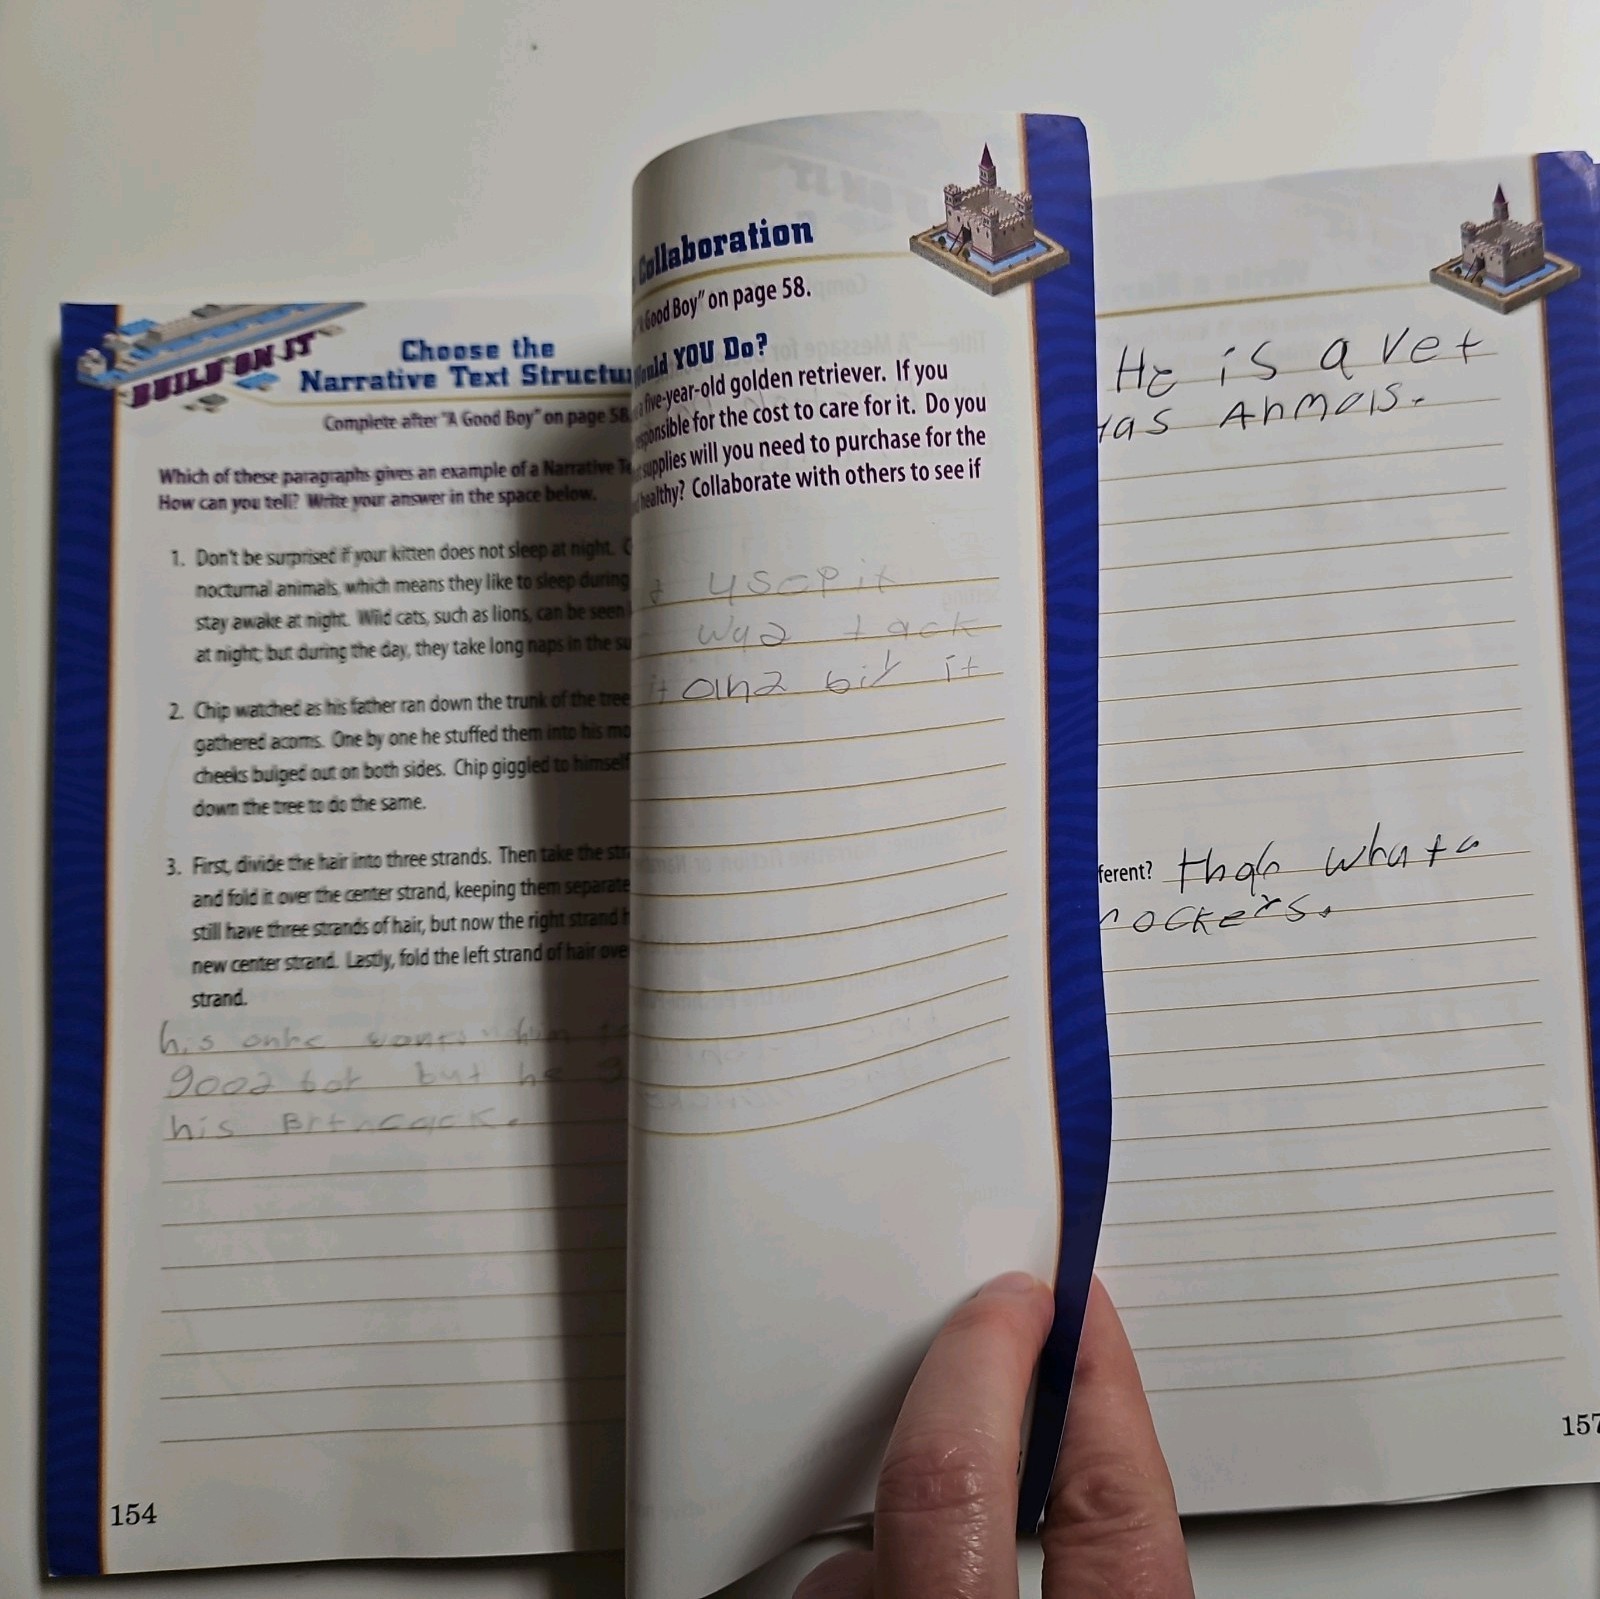 BUILD ON IT
Choose the
Narrative Text Structu
Complete after "A Good Boy" on page 58.
Which of these paragraphs gives an example of a Narrative Te
How can you tell? Write your answer in the space below.
1. Don't be surprised if your kitten does not sleep at night. C
nocturnal animals, which means they like to sleep during
stay awake at night. Wild cats, such as lions, can be seen
at night; but during the day, they take long naps in the su
2. Chip watched as his father ran down the trunk of the tree
gathered acorns. One by one he stuffed them into his mo
cheeks bulged out on both sides. Chip giggled to himself
down the tree to do the same.
3. First, divide the hair into three strands. Then take the str
and fold it over the center strand, keeping them separate
still have three strands of hair, but now the right strand h
new center strand. Lastly, fold the left strand of hair ove
strand.
his
but he
his
154
Collaboration
Good Boy" on page 58.
ould YOU Do?
a five-year-old golden retriever. If you
sponsible for the cost to care for it. Do you
supplies will you need to purchase for the
healthy? Collaborate with others to see if
it
it
He is a vet
as Anmals.
ferent? than whata
ockers.
157